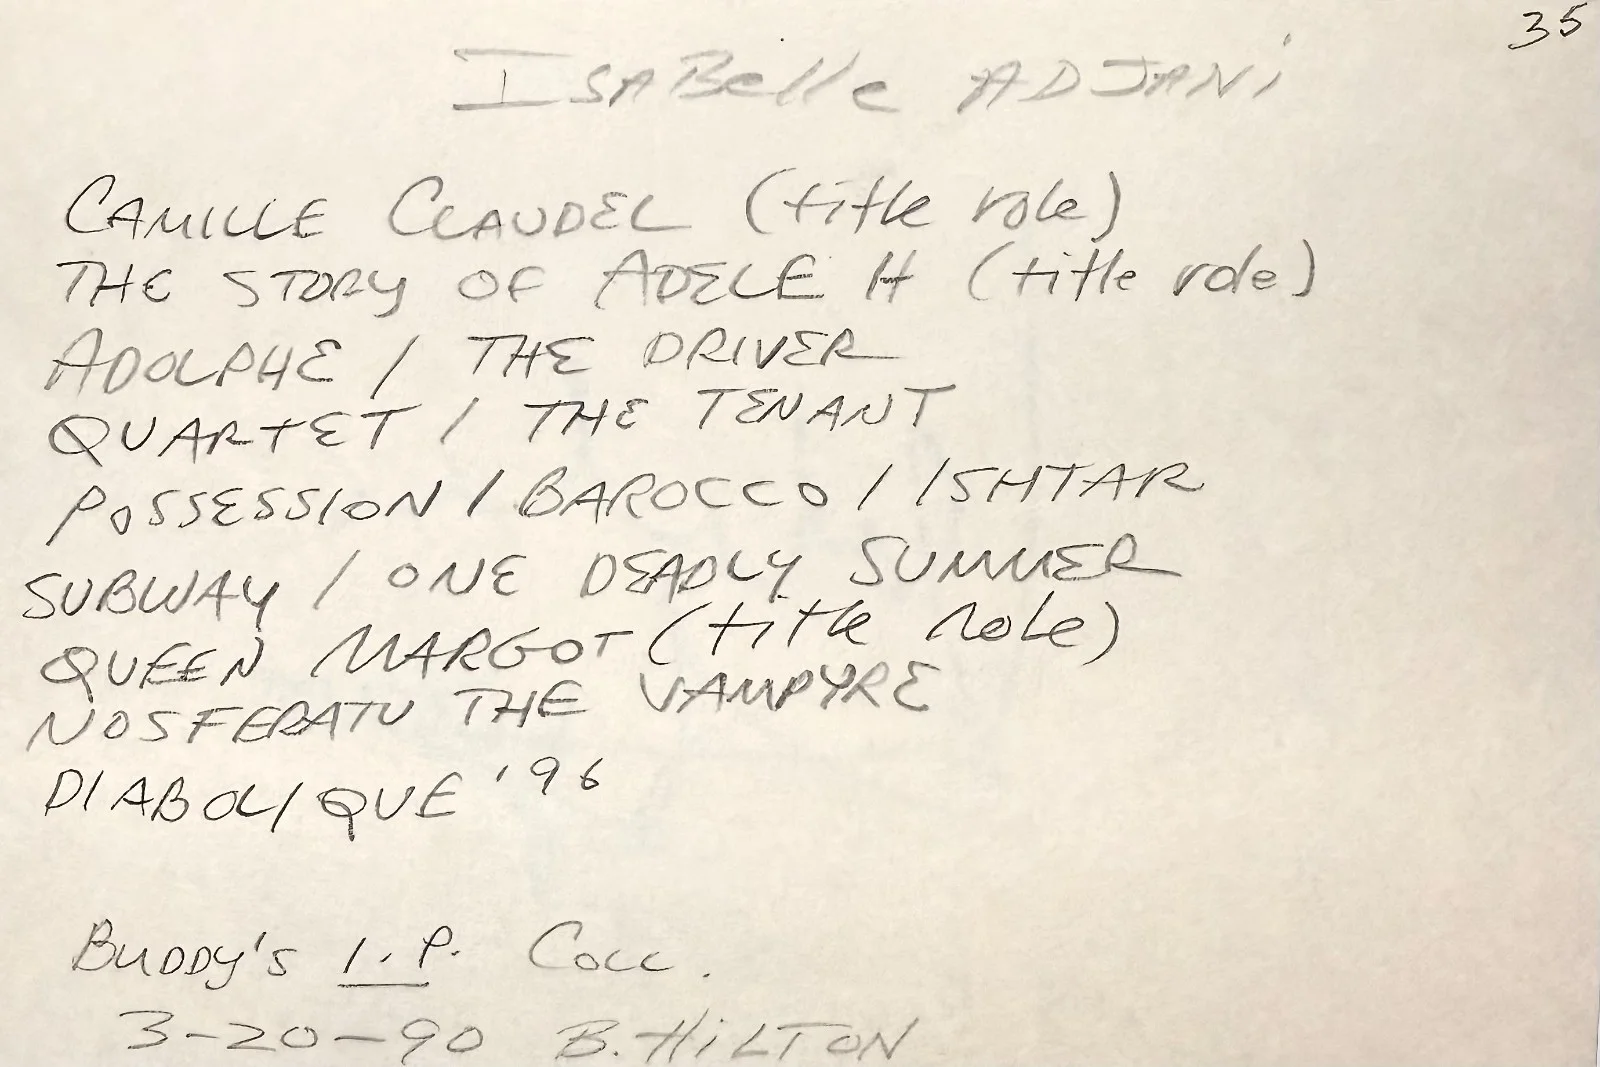 35
ISABelle ADJANi
CAMILLE CLAUDEL (title role)
THE STORY OF ADELE H (title role)
ADOLPHE / THE DRIVER
QUARTET / THE TENANT
POSSESSION / BAROCCO / ISHTAR
SUBWAY / ONE DEADLY SUMMER
QUEEN MARGOT (title role)
NOSFERATU THE VAMPYRE
DIABOLIQUE '96
BUDDY'S I.P. COLL.
3-20-90 B. HiLTON